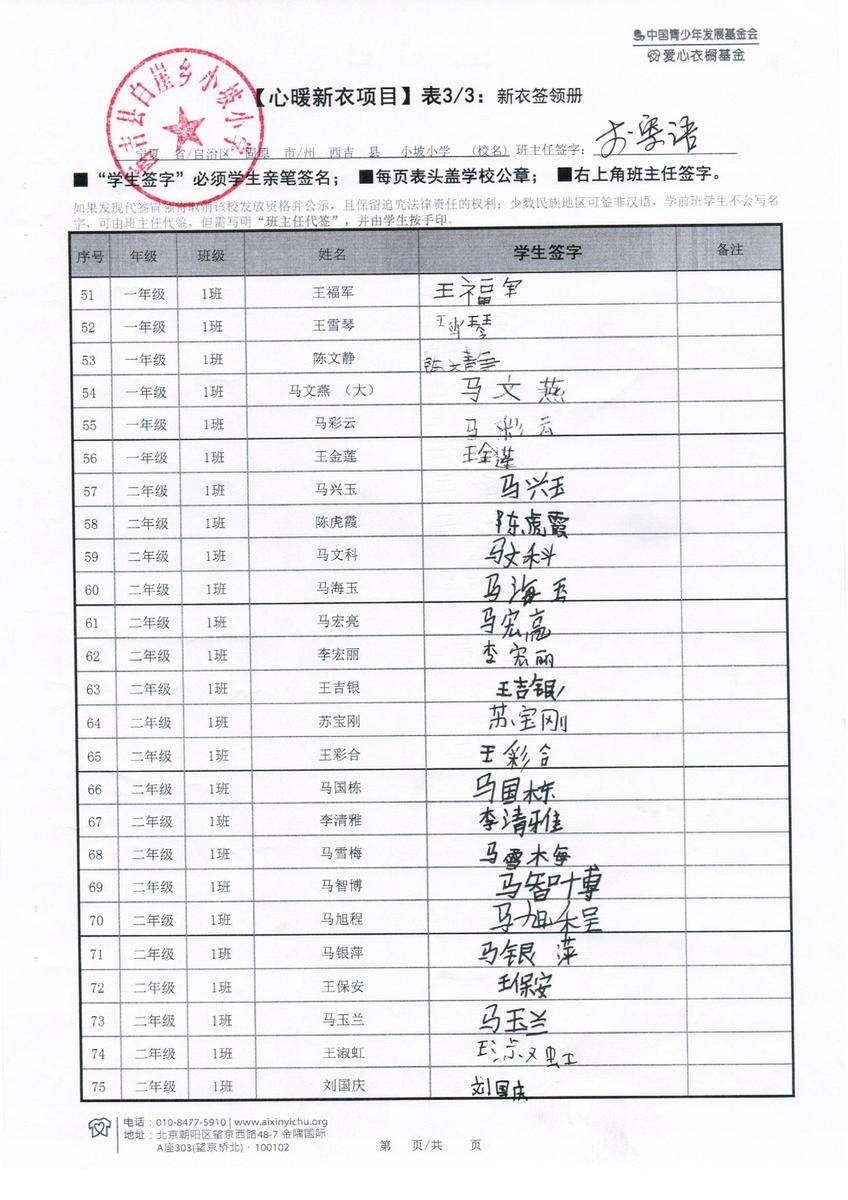 中国青少年发展基金会
爱心衣橱基金
西吉县白崖乡小坡小学
【心暖新衣项目】表3/3：新衣签领册
宁夏 省/自治区 固原 市/州 西吉 县 小坡小学 （校名） 班主任签字：
■“学生签字”必须学生亲笔签名； ■每页表头盖学校公章； ■右上角班主任签字。
如果发现代签冒领将取消该校发放资格并公示，且保留追究法律责任的权利；少数民族地区可签非汉语，学前班学生不会写名
字，可由班主任代签，但需写明“班主任代签”，并由学生按手印。
序号 年级 班级 姓名 学生签字 备注
51 一年级 1班 王福军 王福军
52 一年级 1班 王雪琴 王雪琴
53 一年级 1班 陈文静 陈文静
54 一年级 1班 马文燕 （大） 马文燕
55 一年级 1班 马彩云 马彩云
56 一年级 1班 王金莲 王金莲
57 二年级 1班 马兴玉 马兴玉
58 二年级 1班 陈虎霞 陈虎霞
59 二年级 1班 马文科 马文科
60 二年级 1班 马海玉 马海玉
61 二年级 1班 马宏亮 马宏亮
62 二年级 1班 李宏丽 李宏丽
63 二年级 1班 王吉银 王吉银
64 二年级 1班 苏宝刚 苏宝刚
65 二年级 1班 王彩合 王彩合
66 二年级 1班 马国栋 马国栋
67 二年级 1班 李清雅 李清雅
68 二年级 1班 马雪梅 马雪梅
69 二年级 1班 马智博 马智博
70 二年级 1班 马旭程 马旭程
71 二年级 1班 马银萍 马银萍
72 二年级 1班 王保安 王保安
73 二年级 1班 马玉兰 马玉兰
74 二年级 1班 王淑虹 王淑虹
75 二年级 1班 刘国庆 刘国庆
电话：010-8477-5910 | www.aixinyichu.org
地址：北京朝阳区望京西路48-7 金隅国际
A座303(望京桥北)·100102
第 页/共 页